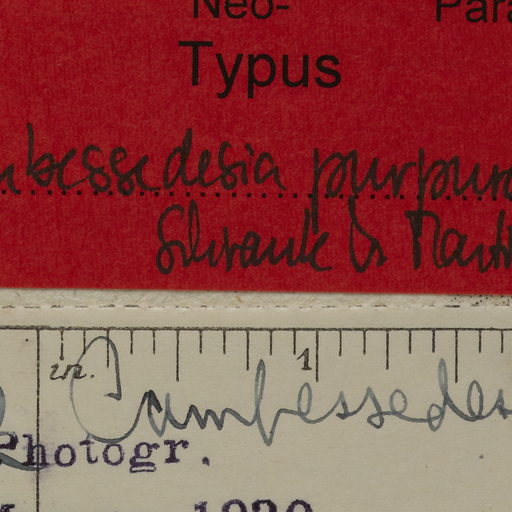 Neo- Para
Typus
bessedesia purpur
Schrank & Marti
in. 1
Cambessedes
Photogr.
1930